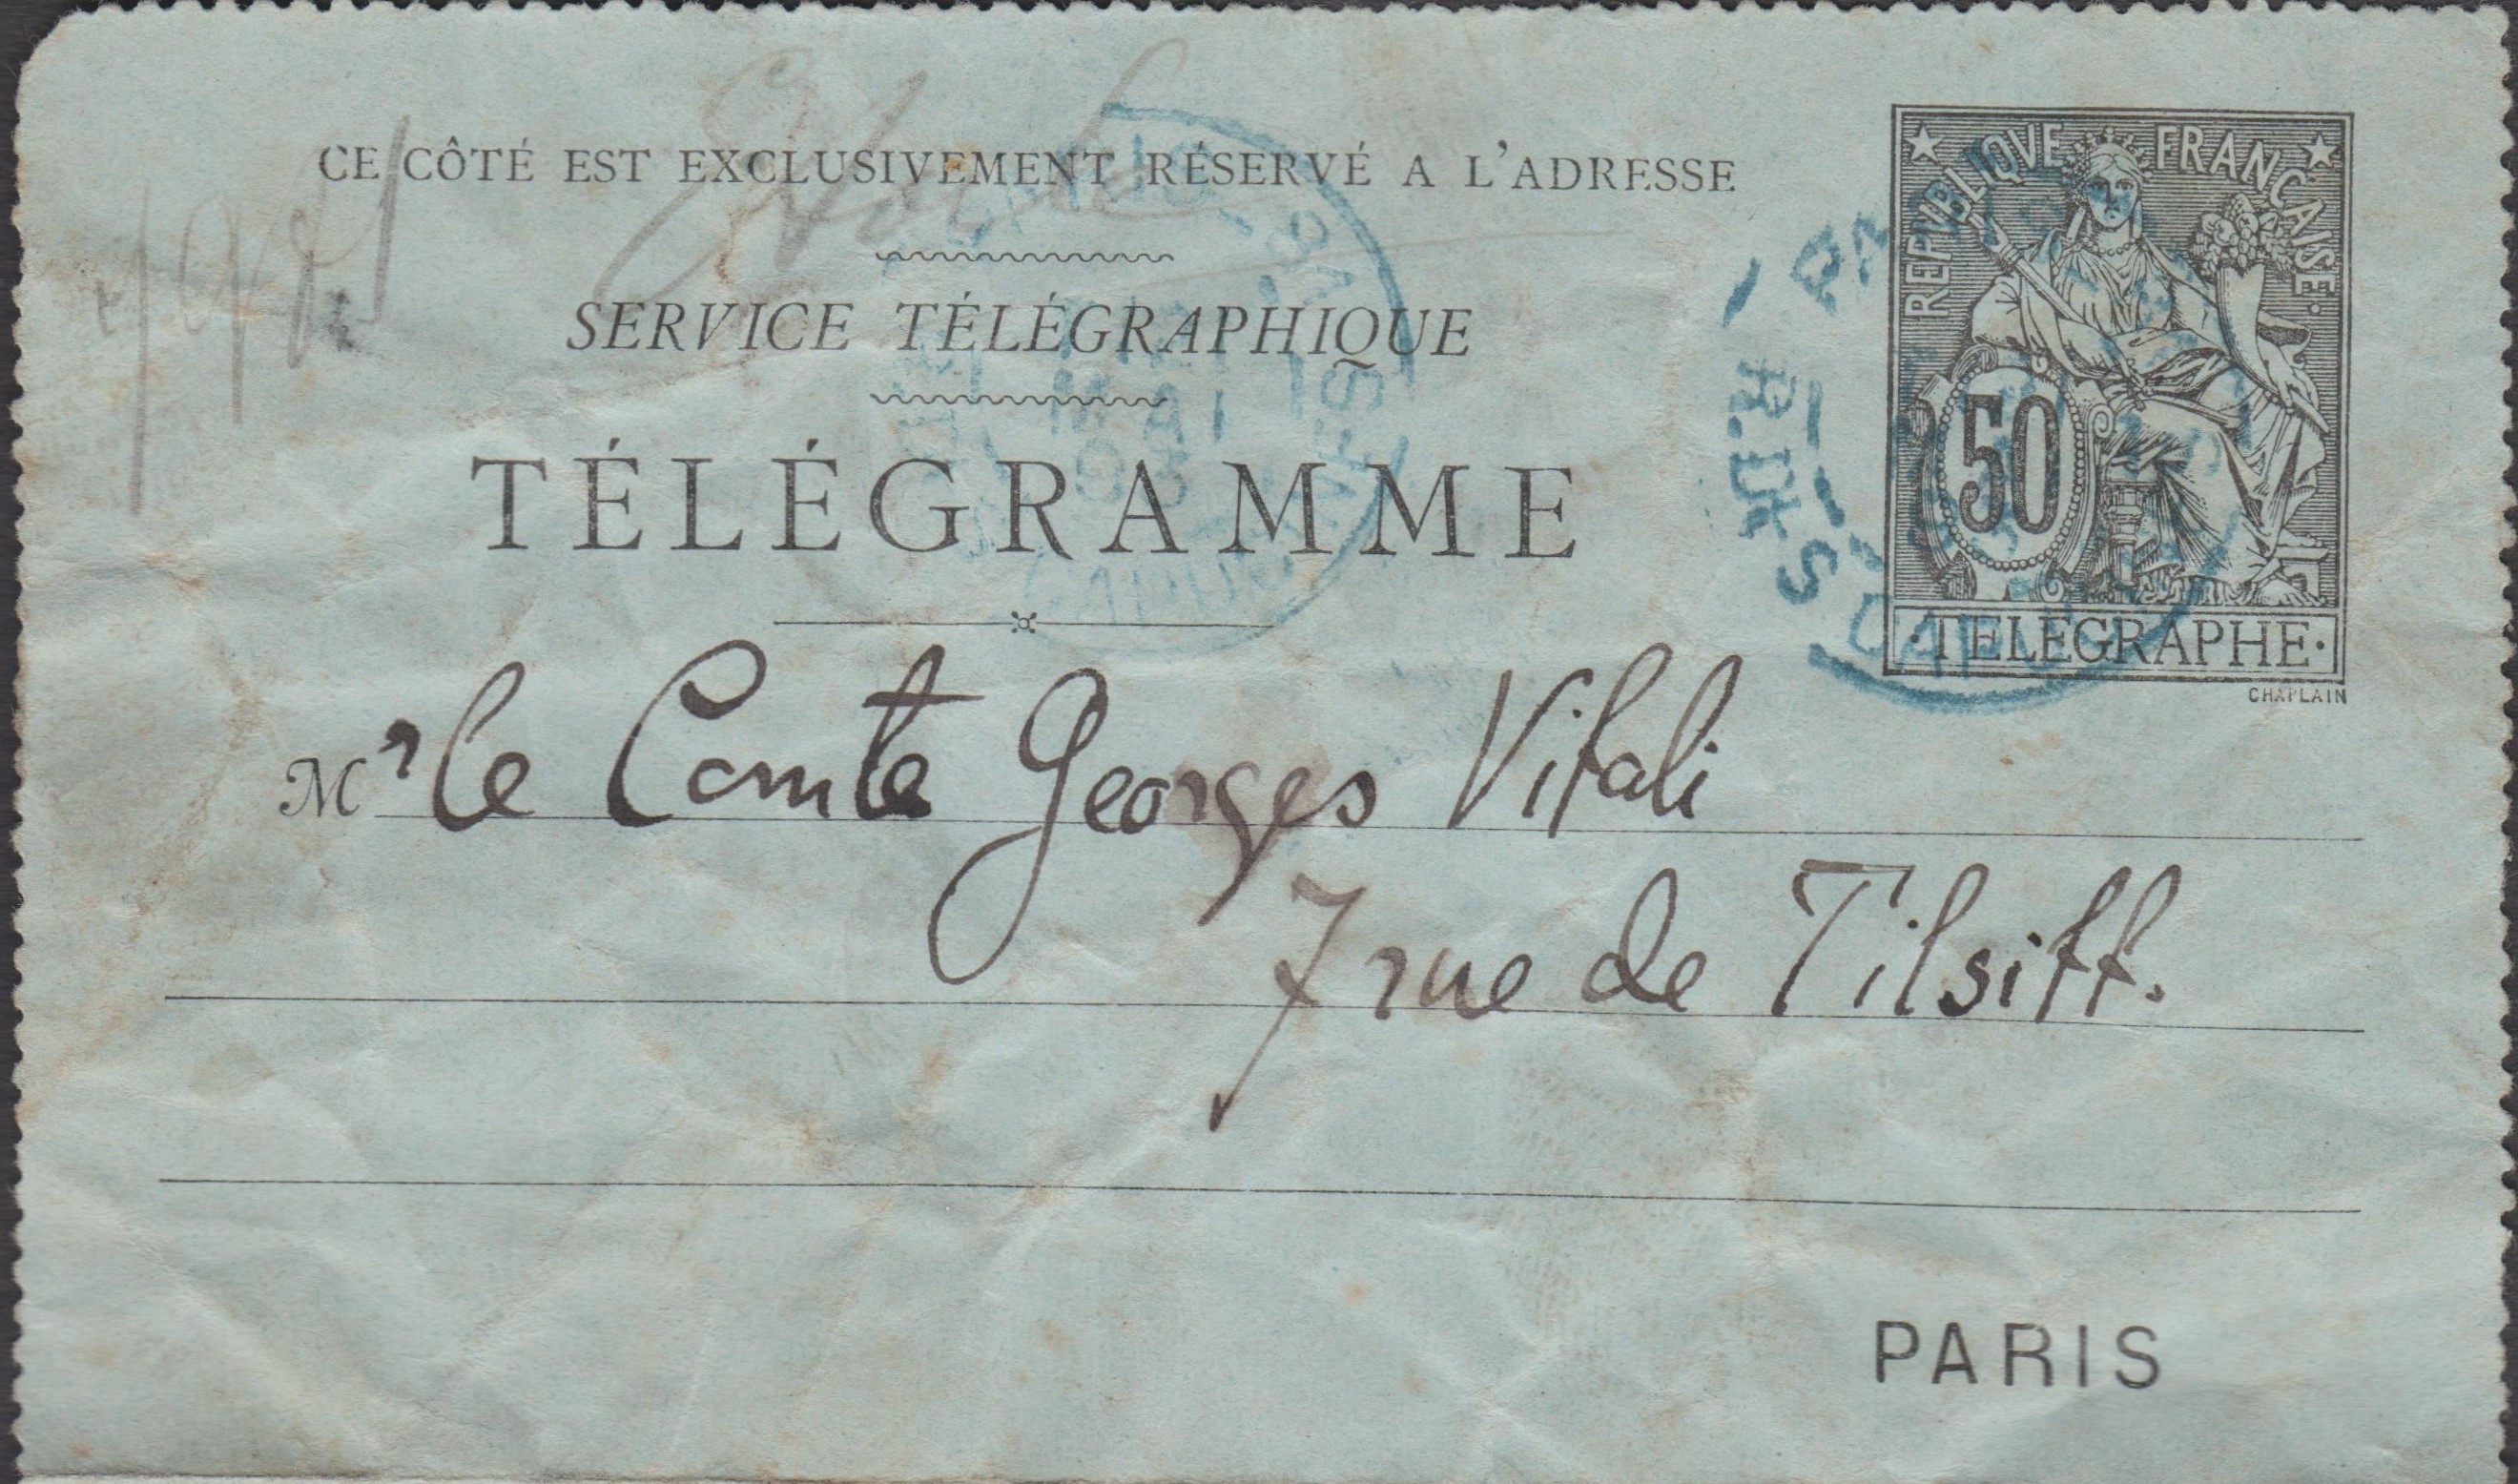 CE CÔTÉ EST EXCLUSIVEMENT RÉSERVÉ A L'ADRESSE
SERVICE TÉLÉGRAPHIQUE
TÉLÉGRAMME
REPVBLIQVE FRANÇAISE.
50
·TÉLÉGRAPHE·
CHAPLAIN
Mr le Comte Georges Vitali
7 rue de Tilsitt.
PARIS